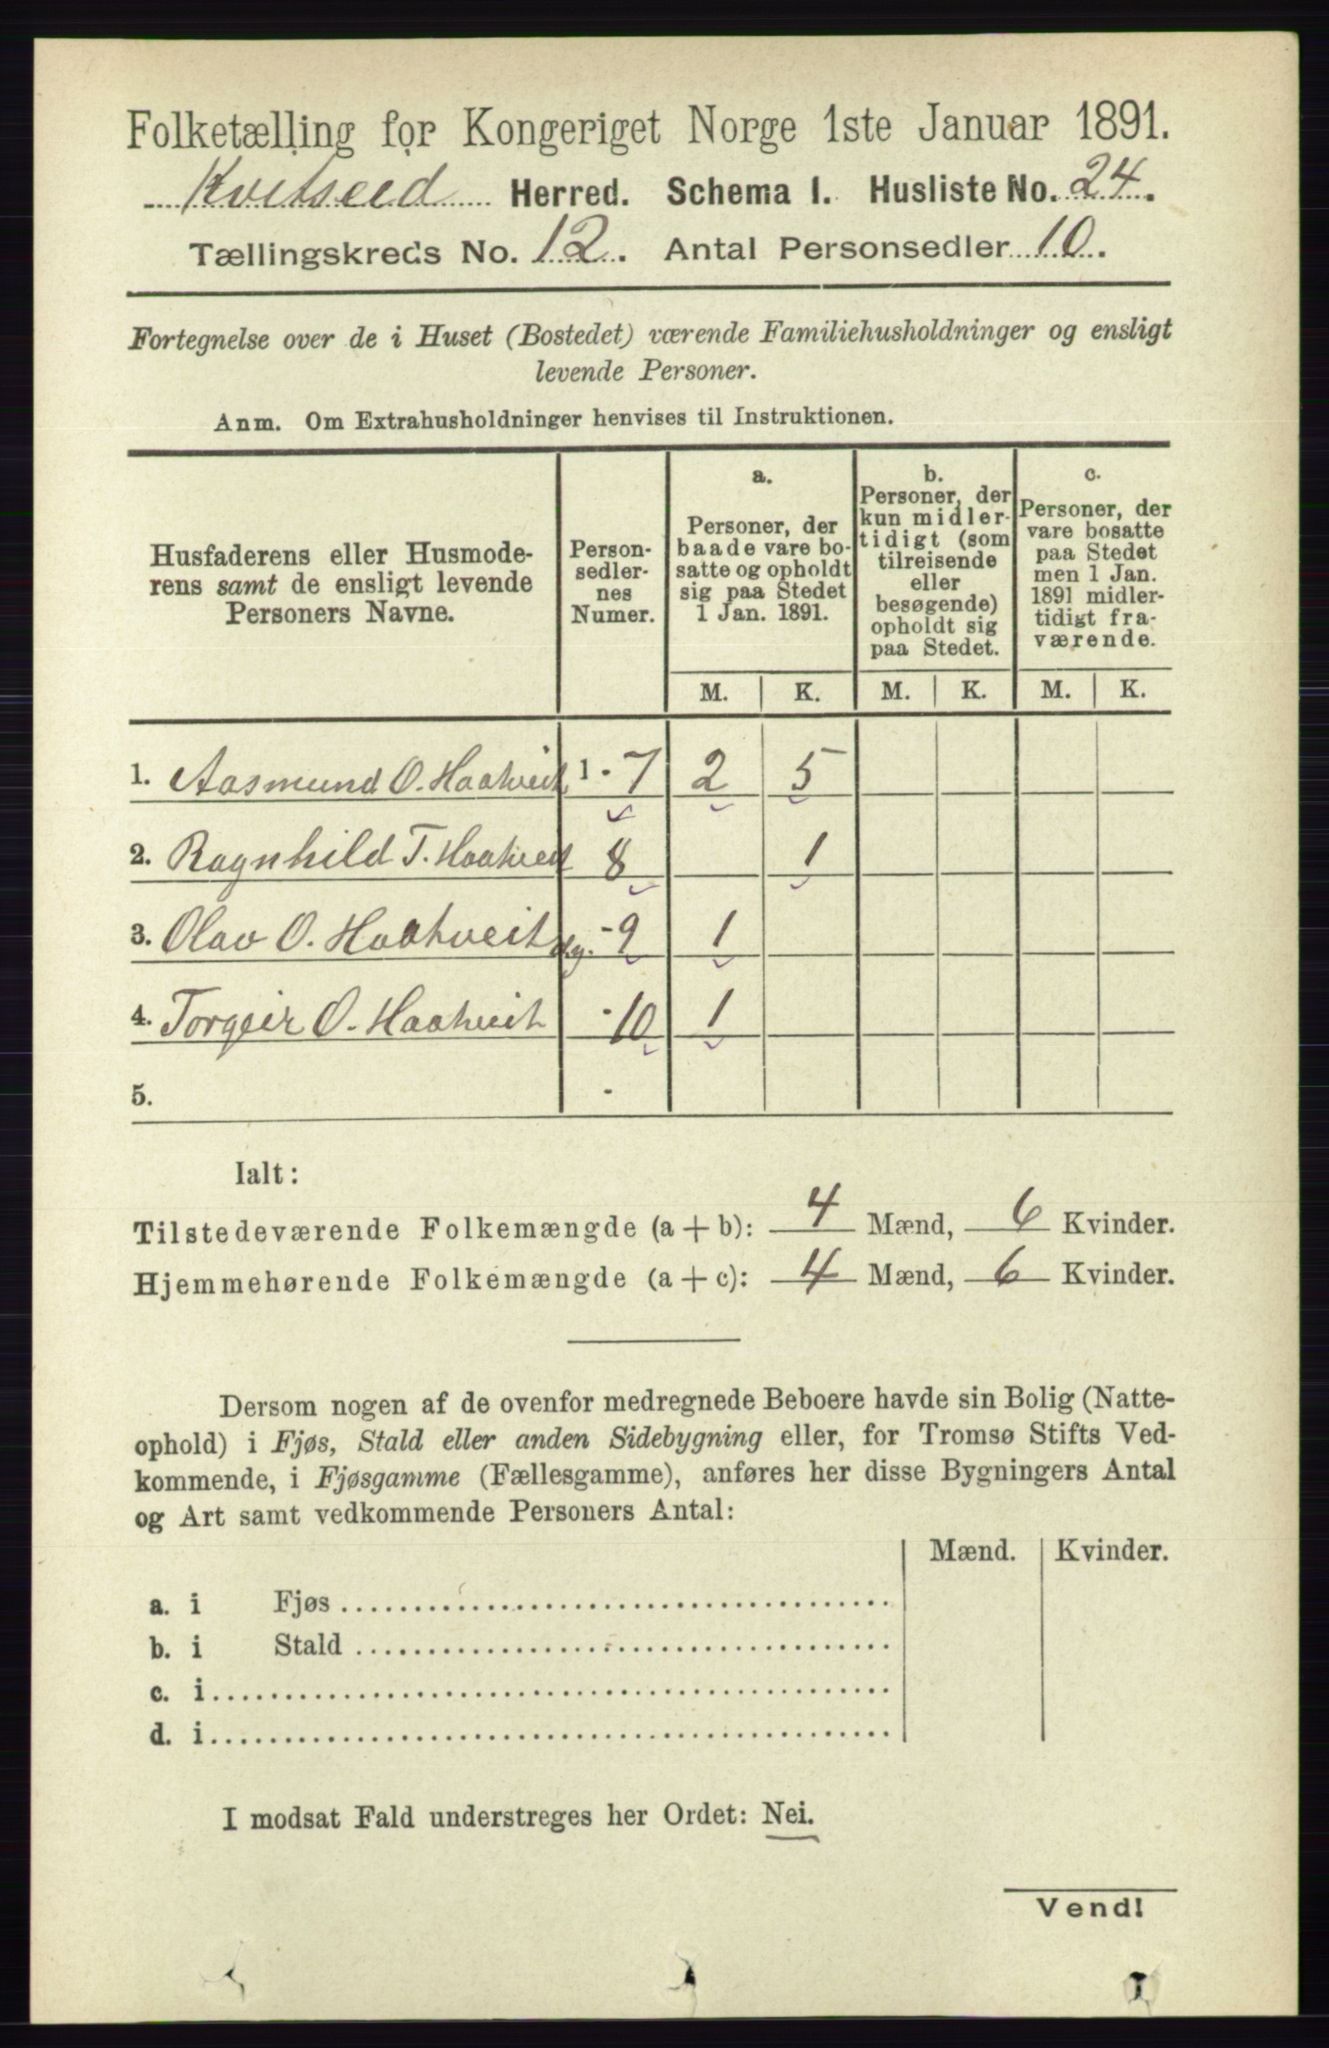 Folketælling for Kongeriget Norge 1ste Januar 1891.
Kvitseid Herred. Schema I. Husliste No. 24.
Tællingskreds No. 12. Antal Personsedler 10.
Fortegnelse over de i Huset (Bostedet) værende Familiehusholdninger og ensligt
levende Personer.
Anm. Om Extrahusholdninger henvises til Instruktionen.
Husfaderens eller Husmode-
rens samt de ensligt levende
Personers Navne.
Person-
sedler-
nes
Numer.
a.
Personer, der
baade vare bo-
satte og opholdt
sig paa Stedet
1 Jan. 1891.
b.
Personer, der
kun midler-
tidigt (som
tilreisende
eller
besøgende)
opholdt sig
paa Stedet.
c.
Personer, der
vare bosatte
paa Stedet
men 1 Jan.
1891 midler-
tidigt fra-
værende.
M. K. M. K. M. K.
1. Aasmund O. Haatveit 1 - 7 2 5
2. Ragnhild T. Haatveit 8 1
3. Olav O. Haatveit - 9 1
4. Torgeir O. Haatveit - 10 1
5. -
Ialt:
Tilstedeværende Folkemængde (a + b): 4 Mænd, 6 Kvinder.
Hjemmehørende Folkemængde (a + c): 4 Mænd, 6 Kvinder.
Dersom nogen af de ovenfor medregnede Beboere havde sin Bolig (Natte-
ophold) i Fjøs, Stald eller anden Sidebygning eller, for Tromsø Stifts Ved-
kommende, i Fjøsgamme (Fællesgamme), anføres her disse Bygningers Antal
og Art samt vedkommende Personers Antal:
Mænd. Kvinder.
a. i Fjøs
b. i Stald
c. i
d. i
I modsat Fald understreges her Ordet: Nei.
Vend!